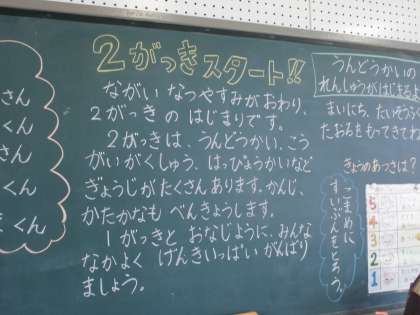 2がっきスタート!!
ながい なつやすみが おわり、
2がっき の はじまりです。
2がっき は、うんどうかい、こう
がいがくしゅう、はっぴょうかいなど
ぎょうじが たくさん あります。かんじ、
かたかなも べんきょうします。
1がっきと おなじように、みんな
なかよく げんきいっぱい がんばり
ましょう。
さん
くん
さん
くん
くん
うんどうかいの
れんしゅうがはじまるよ
まいにち、たいそうふく
たおるをもってきてす
きょうのあつさは?
こまめに
すいぶんをとろう。
5
4
3
2
1